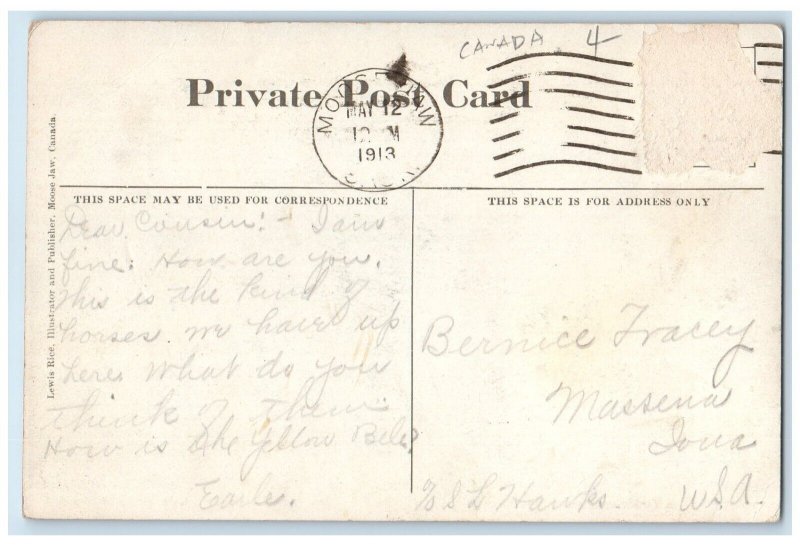 CANADA 4
Private Post Card
MOOSE JAW
MAY 12
12 M
1913
SASK.
THIS SPACE MAY BE USED FOR CORRESPONDENCE
THIS SPACE IS FOR ADDRESS ONLY
Lewis Rice, Illustrator and Publisher, Moose Jaw, Canada
Dear Cousin:- I am
fine. How are you.
This is the kind of
horses we have up
here. What do you
think of them.
How is the Yellow Bele?
Earle.
Bernice Tracey
Massena
Iowa
% S L Hawks. U.S.A.